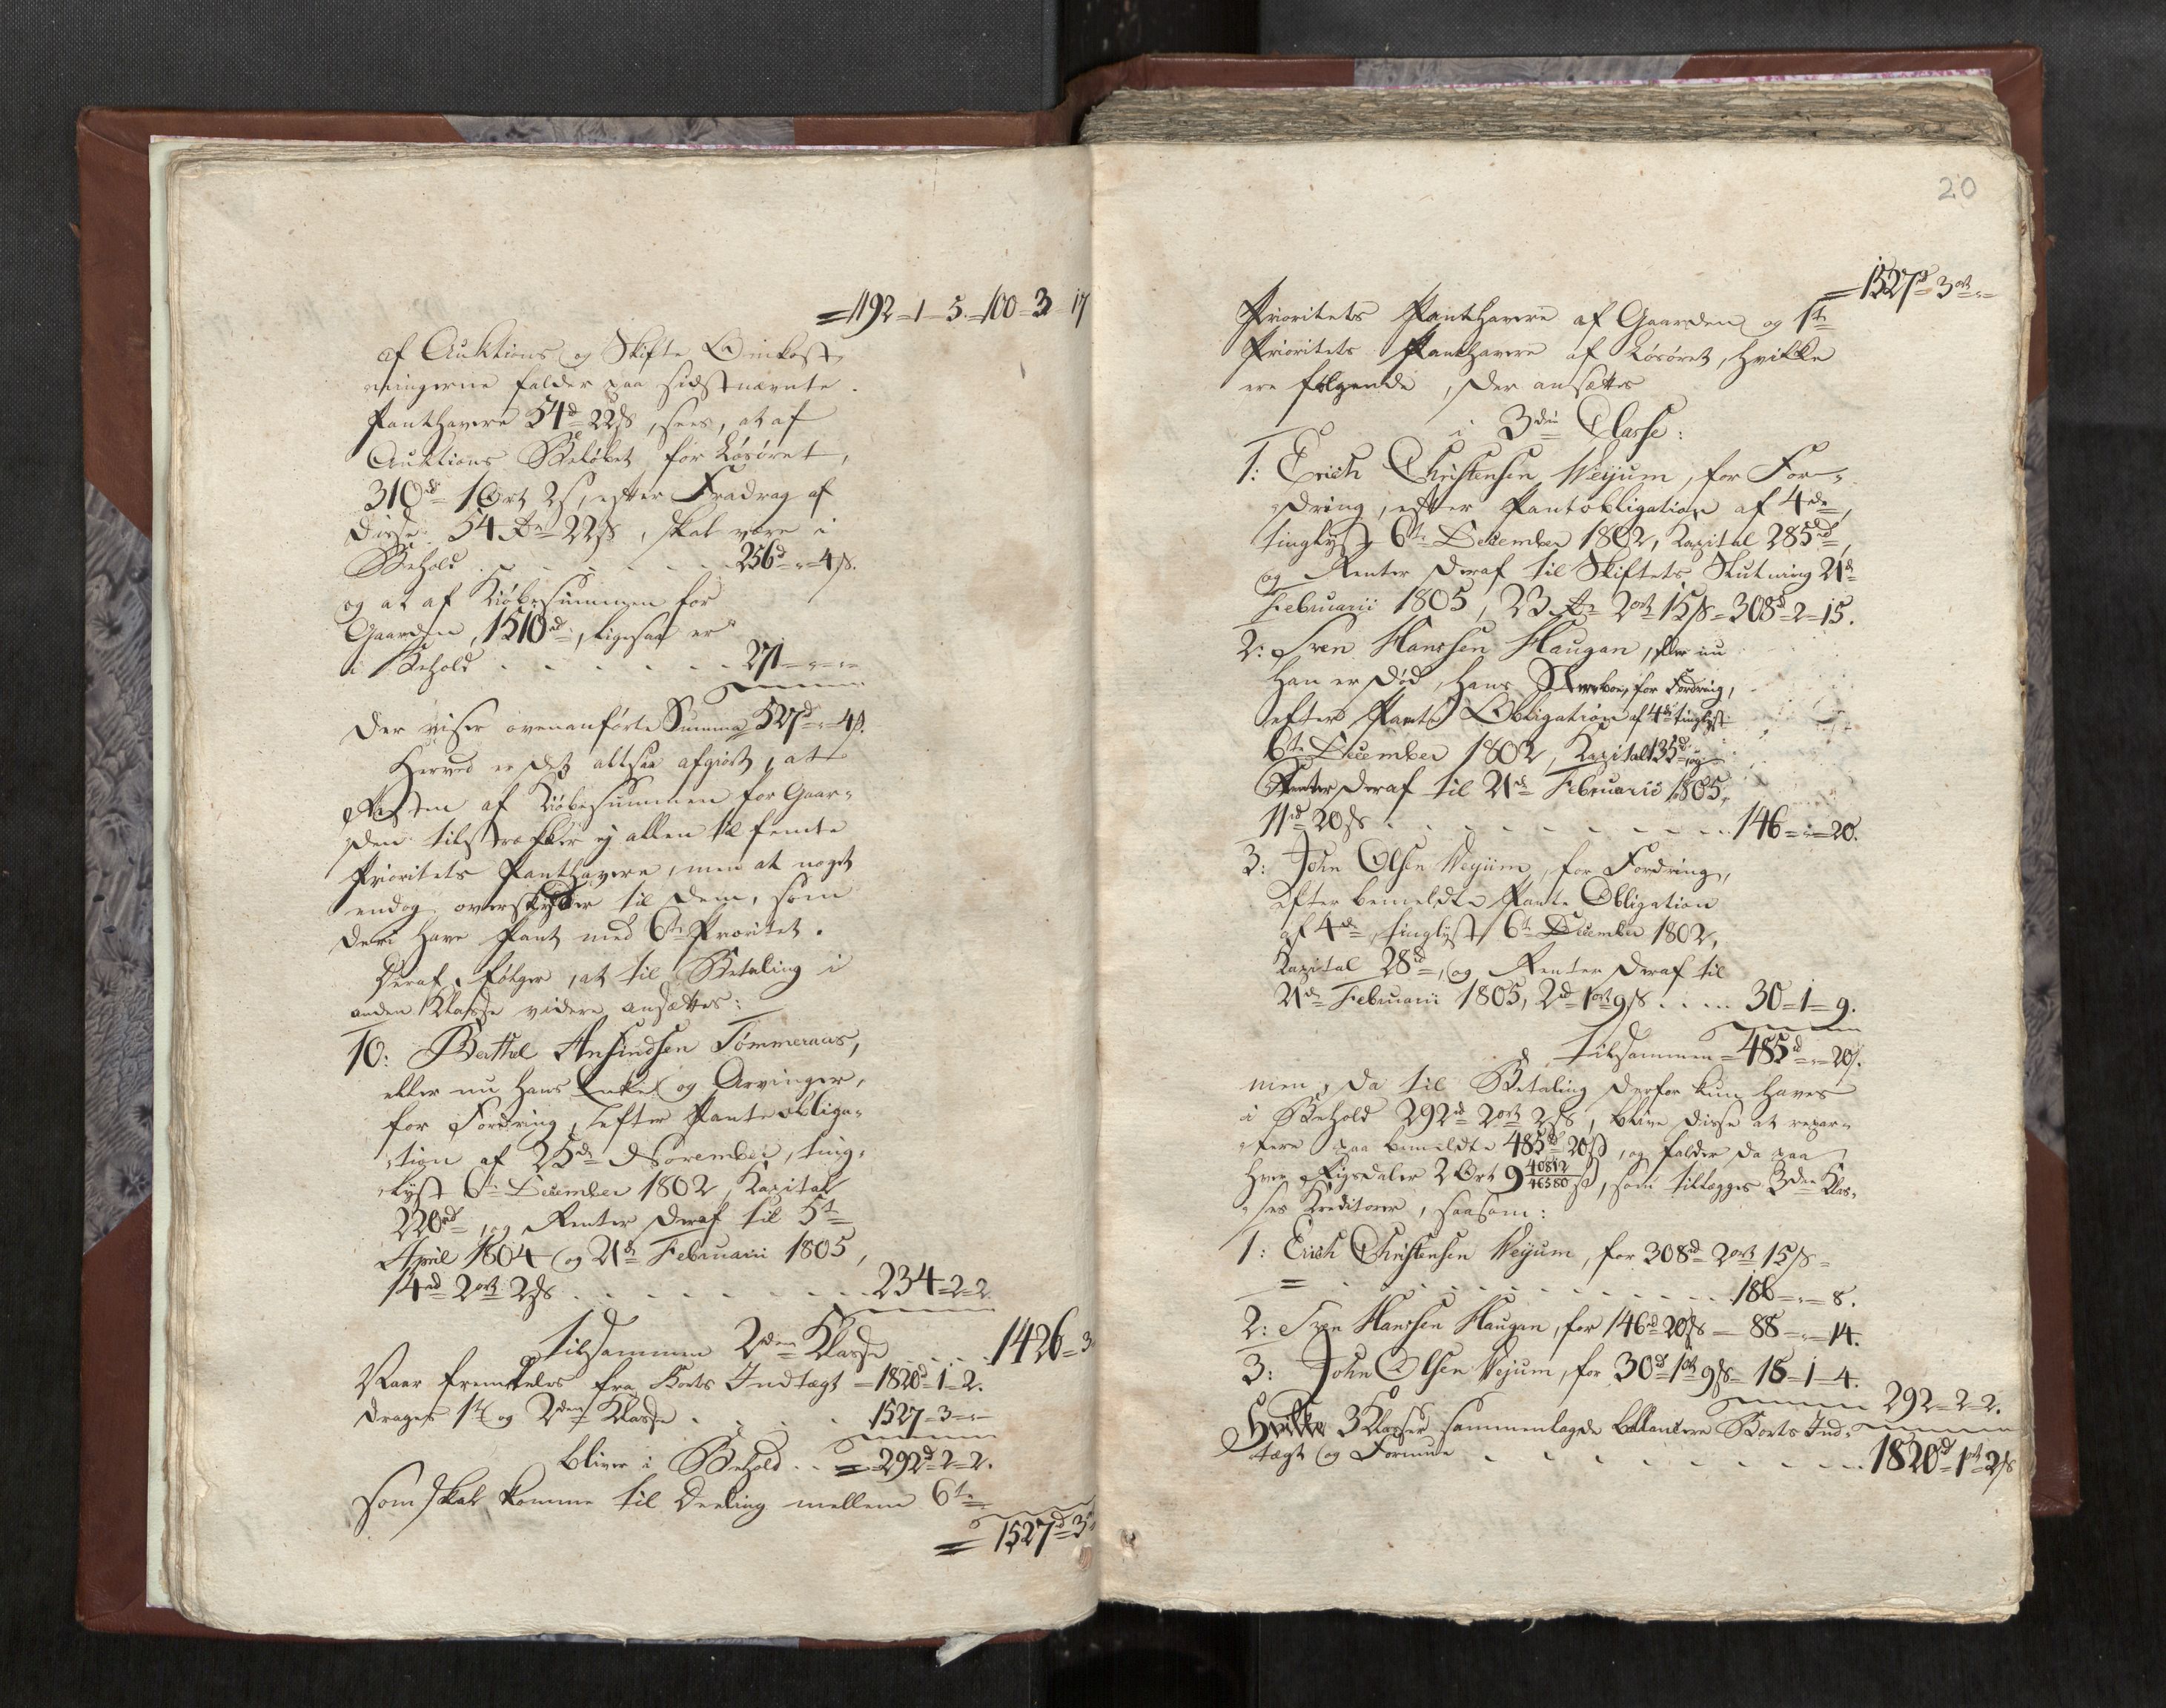 =1192=1=5.=100=3=17
af Auktions og Skifte Omkost¬
ningerne falder paa sidstnævnte
Panthavere 54d=22ß, sees, at af
Auktions Beløbet for Løsøret,
310rd=1Ort 2ß, efter Fradrag af
disse 54 rd=22ß, skal være i
Behold . . . . . . 256d=„=4ß.
og at af Kiøbesummen for
Gaarden, 1510rd=, ligesaa er
i Behold . . . . . . 271=„=„=
der viser ovenanførte Summa 527d=„=4ß.
Herved er det altsaa afgiort, at
Resten af Kiøbesummen for Gaar¬
den tilstrækker ej alleene til femte
Prioritets Panthavere, men at noget
endog overskyder til dem, som
deri have Pant med 6te Prioritet.
Deraf følger, at til Betaling i
anden Klasse videre ansættes:
10: Berthel Ansindsen Tømmeraas,
eller nu hans Enke og Arvinger,
for Fordring, efter Panteobliga¬
tion af 25de November, ting¬
lyst 6te December 1802, Kapital
220rd=, og Renter deraf til 5te
April 1804 og 21de Februarii 1805,
14rd=2ort=2ß . . . . . . 234=2=2.
tilsammen 2den Klasse . . . 1426=3=
Naar fremdeles fra Boets Indtægt =1820d=1=2.
drages 1te og 2den Klasse . . . . 1527=3=„=
bliver i Behold . . =292d=2=2.
som skal komme til Deeling mellem 6te
=1527d=3
20
=1527d=3ort=„=
Prioritets Panthavere af Gaarden og 1te
Prioritets Panthavere af Løsøret, hvilke
ere følgende, der ansættes
i 3die Classe:
1: Erich Christensen Weijum, for For¬
dring, efter Pantobligation af 4de,
tinglyst 6te December 1802, Kapital 285rd=,
og Renter deraf til Skiftets Slutning 21de
Februarii 1805, 23 rd=2ort=15ß=308d=2=15.
2: Sven Hanssen Haugan, eller nu
han er død, hans Sterboe, for Fordring,
efter Pante Obligation af 4de tinglyst
6te December 1802, Kapital 135d=, og
Renter deraf til 21de Februarii 1805,
11rd=20ß . . . . . . . . 146=„=20.
3: John Olsen Weijum, for Fordring,
efter bemeldte Pante Obligation
af 4de, tinglyst 6te December 1802,
Kapital 28rd=, og Renter deraf til
21de Februarii 1805, 2rd=1ort=9ß . . . . 30=1=9.
tilsammen=485d=„=20ß.
men, da til Betaling derfor kun haves
i Behold 292rd=2ort=2ß, blive disse at repar¬
tere paa bemeldte 485rd=20ß, og falder da paa
hver Rigsdaler 2 Ort 9 40812/46580 ß, som tillægges 3die Klas¬
ses Kreditorer, saasom:
1: Erich Christensen Weijum, for 308rd=2ort=15ß=
= . . . . . . . . 186=„=8.
2: Sven Hanssen Haugan, for 146rd=20ß= 88=„=14.
3: John Olsen Vejum, for 30d=1ort=9ß= 18=1=4.
292=2=2.
Hvilke 3 Klasser sammenlagde ballancere Boets Ind¬
tægt og Formue . . . . . . . . 1820d=1ort=2ß